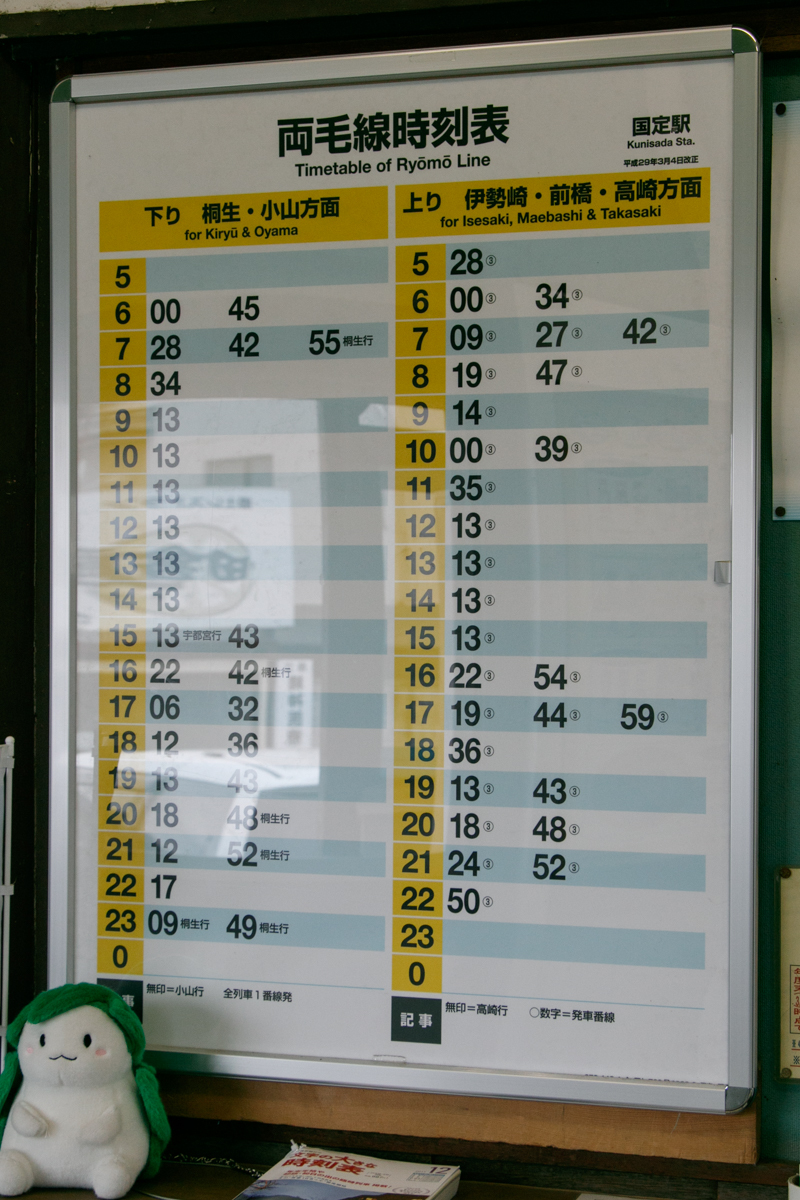 両毛線時刻表
Timetable of Ryōmō Line
国定駅
Kunisada Sta.
平成29年3月4日改正
下り 桐生・小山方面
for Kiryū & Oyama
5
6 00 45
7 28 42 55桐生行
8 34
9 13
10 13
11 13
12 13
13 13
14 13
15 13宇都宮行 43
16 22 42桐生行
17 06 32
18 12 36
19 13 43
20 18 48桐生行
21 12 52桐生行
22 17
23 09桐生行 49桐生行
0
事 無印=小山行 全列車1番線発
上り 伊勢崎・前橋・高崎方面
for Isesaki, Maebashi & Takasaki
5 28③
6 00③ 34③
7 09③ 27③ 42③
8 19③ 47③
9 14③
10 00③ 39③
11 35③
12 13③
13 13③
14 13③
15 13③
16 22③ 54③
17 19③ 44③ 59③
18 36③
19 13③ 43③
20 18③ 48③
21 24③ 52③
22 50③
23
0
記事 無印=高崎行 ○数字=発車番線
文字の大きな
時刻表
12